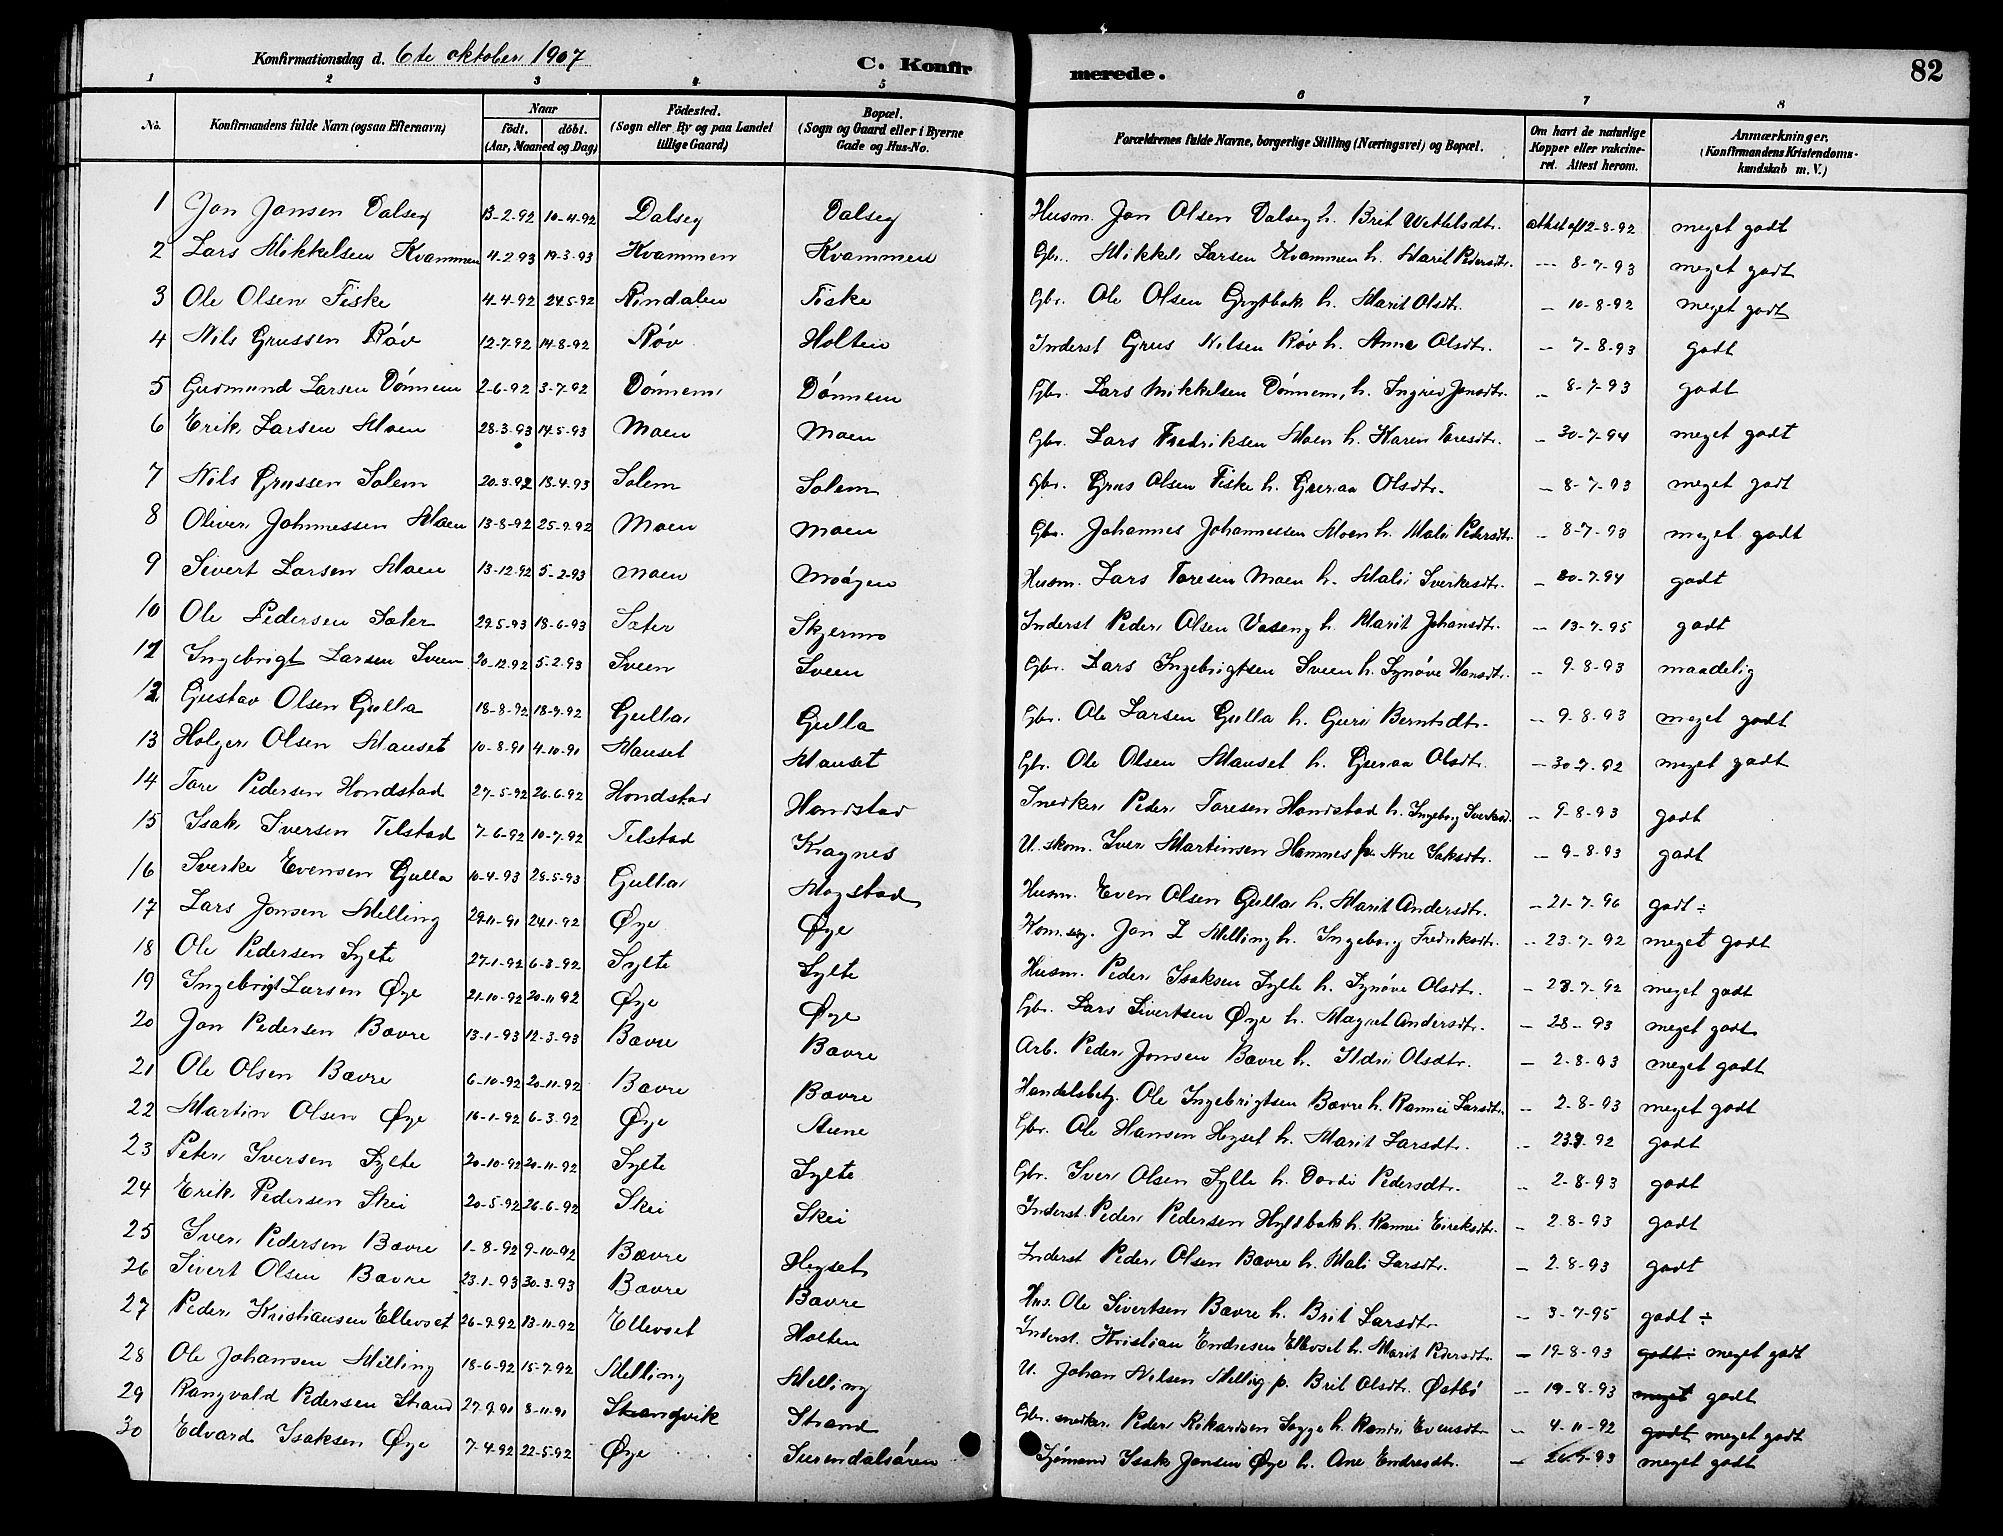 Konfirmationsdag d. 6te oktober 1907 C. Konfirmerede. 82
1 2 3 4 5 6 7 8
No. Konfirmandens fulde Navn (ogsaa Efternavn) Naar födt. döbt. (Aar, Maaned og Dag) Födested. (Sogn eller By og paa Landet tillige Gaard) Bopæl. (Sogn og Gaard eller i Byerne Gade og Hus-No. Forældrenes fulde Navne, borgerlige Stilling (Næringsvei) og Bopæl. Om havt de naturlige Kopper eller vakcineret. Attest herom. Anmærkninger. (Konfirmandens Kristendomskundskab m. V.)
1 Jon Jonsen Dalsey 13-2-92 10-4-92 Dalsey Dalsey Husm. Jon Olsen Dalsey h. Brit 12-8-92 meget godt
2 Lars Mikkelsen Kvammen 4-2-93 19-3-93 Kvammen Kvammen Gbr. Mikkel Larsen Kvammen h. Marit Pedersdtr. 8-7-93 meget godt
3 Ole Olsen Fiske 4-4-92 24-5-92 Rindalen Fiske Gbr. Ole Olsen Grytbak h. Marit Olsdtr. 10-8-92 meget godt
4 Nils Grussen Røv 12-7-92 14-8-92 Røv Holten Inderst Grus Nilsen Røv h. Anne Olsdtr. 7-8-93 godt
5 Gudmund Larsen Dønnem 2-6-92 3-7-92 Dønnem Dønnem Gbr. Lars Mikkelsen Dønnem, h. Ingrid Jonsdtr. 8-7-93 godt
6 Erik Larsen Moen 28-3-93 14-5-93 Moen Moen Gbr. Lars Fredriksen Moen h. Karen Toresdtr. 30-7-94 meget godt
7 Nils Grussen Solem 20-3-92 18-4-93 Solem Solem Gbr. Grus Olsen Fiske h. Guruaa Olsdtr. 8-7-93 meget godt
8 Oliver Johannessen Moen 13-8-92 25-9-92 Moen Moen Gbr. Johannes Johannessen Moen h. Mali Pedersdtr. 8-7-93 meget godt
9 Sivert Larsen Moen 13-12-92 5-2-93 Moen Moøgen Husm. Lars Toresen Moen h. Mali Sverkesdtr. 30-7-94 godt
10 Ole Pedersen Sæter 29-5-93 18-6-93 Sæter Skjermo Inderst Peder Olsen Vaseng h. Marit Johansdtr. 13-7-95 godt
11 Ingebrigt Larsen Sveen 20-12-92 5-2-93 Sveen Sveen Gbr. Lars Ingebrigtsen Sveen h. Synøve Hansdtr. 9-8-93 maadelig
12 Gustav Olsen Gulla 18-8-92 18-9-92 Gulla Gulla Gbr. Ole Larsen Gulla h. Guri Berntsdtr. 9-8-93 meget godt
13 Holger Olsen Mauset 10-8-91 4-10-91 Mauset Mauset Gbr. Ole Olsen Mauset h. Guruaa Olsdtr. 30-7-92 meget godt
14 Tore Pedersen Hondstad 27-5-92 26-6-92 Hondstad Hondstad Snedker Peder Toresen Hondstad h. Ingeborg Sverkesd. 9-8-93 godt
15 Isak Iversen Telstad 7-6-92 10-7-92 Telstad Kragnes U. skom. Iver Martinsen Hamnes p. Ane Isaksdtr. 9-8-93 godt
16 Sverke Evensen Gulla 10-4-93 28-5-93 Gulla Mogstad Husm. Even Olsen Gulla h. Marit Andersdtr. 21-7-96 godt ÷
17 Lars Jonsen Melling 29-11-91 24-1-92 Øye Øye Jon L Melling h. Ingeborg Fredriksdtr. 23-7-92 meget godt
18 Ole Pedersen Sylte 27-1-92 6-3-92 Sylte Sylte Husm. Peder Isaksen Sylte h. Synøve Olsdtr. 23-7-92 meget godt
19 Ingebrigt Larsen Øye 21-10-92 20-11-92 Øye Øye Gbr. Lars Sivertsen Øye h. Magret Andersdtr. 28- 93 meget godt
20 Jon Pedersen Bævre 13-1-93 12-3-93 Bævre Bævre Arb. Peder Jonsen Bævre h. Ildri Olsdtr. 2-8-93 meget godt
21 Ole Olsen Bævre 6-10-92 20-11-92 Bævre Bævre Handelsbetj. Ole Ingebrigtsen Bævre h. Rannei Larsdtr. 2-8-93 meget godt
22 Martin Olsen Øye 16-1-92 6-3-92 Øye Aune Gbr. Ole Hansen Heyset h. Marit Larsdtr. 23-7-92 godt
23 Peter Iversen Sylte 20-10-92 20-11-92 Sylte Sylte Gbr. Iver Olsen Sylte h. Dordi Pedersdtr. 2-8-93 godt
24 Erik Pedersen Skei 20-5-92 26-6-92 Skei Skei Inderst. Peder Pedersen Hyldbak h. Rannei Eireksdtr. 2-8-93 godt
25 Iver Pedersen Bævre 1-8-92 9-10-92 Bævre Heyset Inderst Peder Olsen Bævre h. Mali Larsdtr. 2-8-93 godt
26 Sivert Olsen Bævre 23-1-93 30-3-93 Bævre Bævre Hus. Ole Sivertsen Bævre h. Brit Larsdtr. 3-7-95 godt ÷
27 Peder Kristiansen Ellevset 26-9-92 13-11-92 Ellevset Holten Inderst. Kristian Endresen Ellevset h. Marit Pedersdtr. 19-8-93 godt meget godt
28 Ole Johansen Melling 18-6-92 15-7-92 Melling Melling U. Johan Nilsen Melling p. Brit Olsdtr. Østbø 19-8-93 meget godt
29 Rangvald Pedersen Strand 27-9-91 8-11-91 Strandvik Strand Gbr. snedker Peder Rikardsen Sogge h. Randi Evensdtr 4-11-92 godt meget godt
30 Edvard Isaksen Øye 7-4-92 22-5-92 Øye Surendalsøren Sjømand Isak Jonsen Øye h. Ane Endresdtr. meget godt